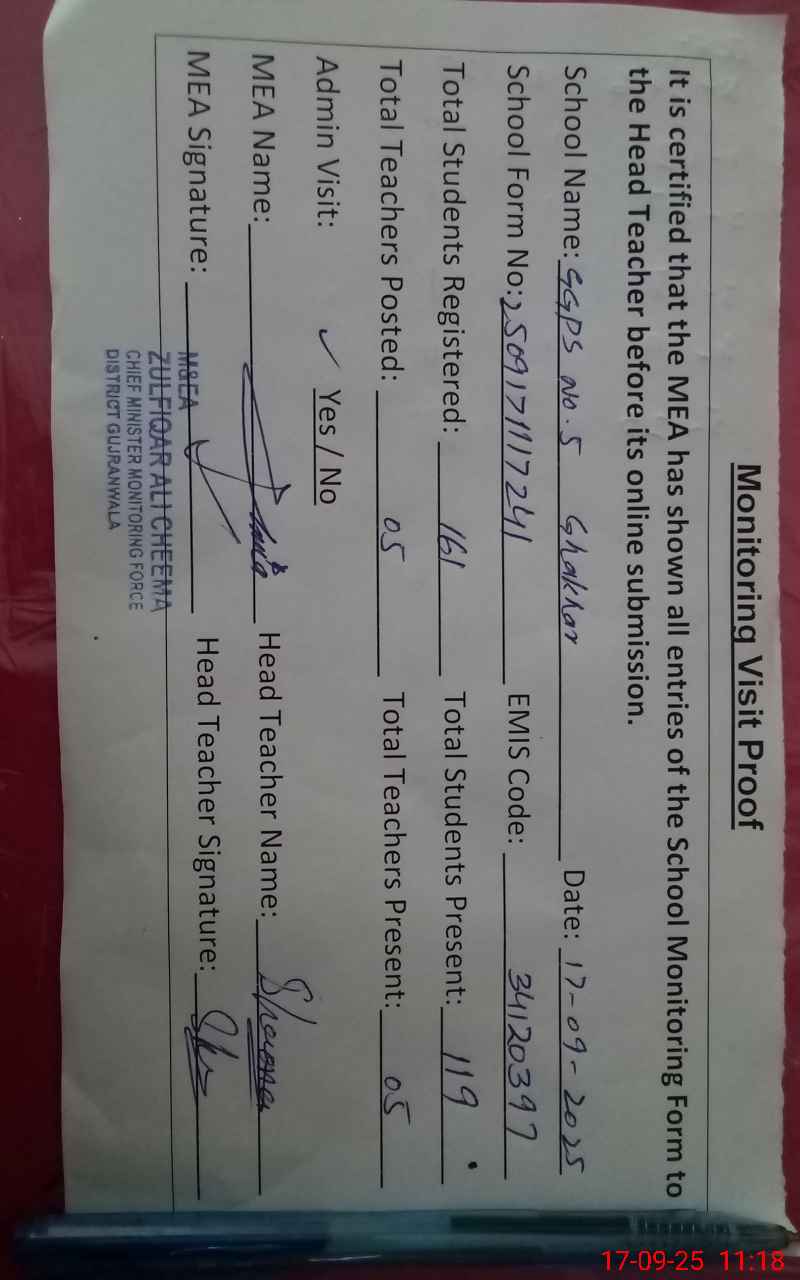 Monitoring Visit Proof
It is certified that the MEA has shown all entries of the School Monitoring Form to
the Head Teacher before its online submission.
School Name: GGPS No. 5 Ghakhar Date: 17-09-2025
School Form No: 250917117241 EMIS Code: 34120397
Total Students Registered: 161 Total Students Present: 119
Total Teachers Posted: 05 Total Teachers Present: 05
Admin Visit: ✓ Yes / No
MEA Name: Head Teacher Name:
MEA Signature: Head Teacher Signature:
M&EA
ZULFIQAR ALI CHEEMA
CHIEF MINISTER MONITORING FORCE
DISTRICT GUJRANWALA
17-09-25 11:18